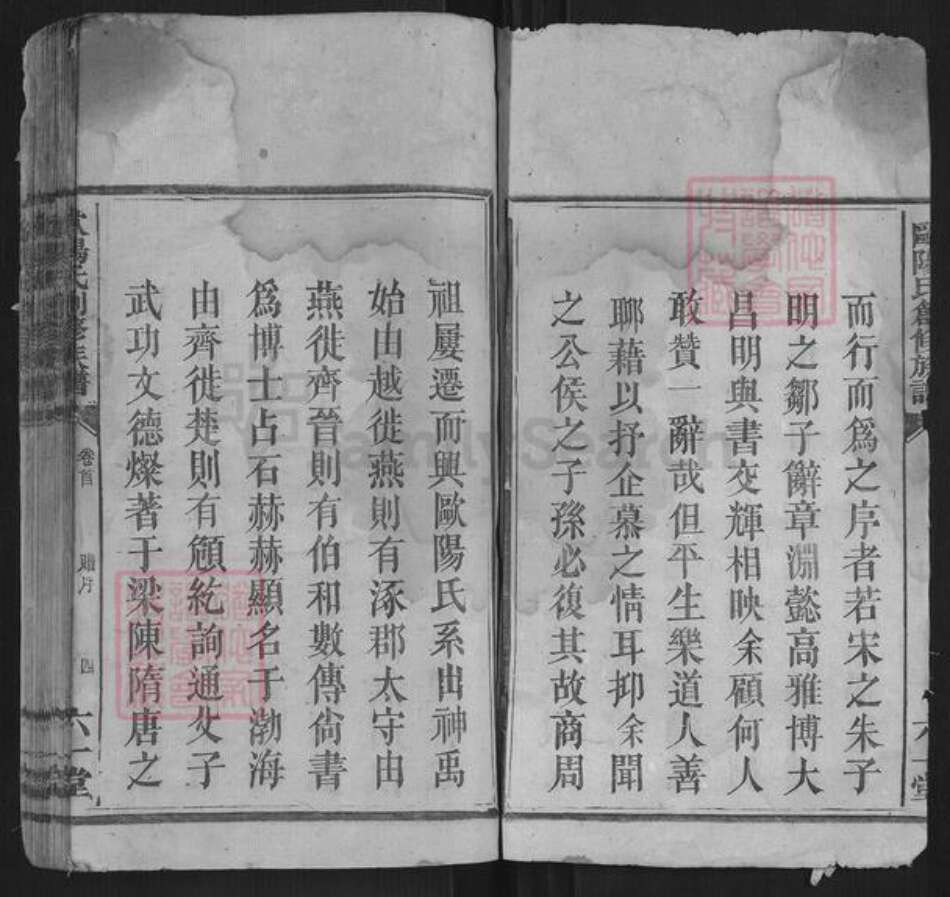 歐陽氏創修族譜
六一堂
而行而為之序者若宋之朱子
明之鄒子辭章淵懿高雅博大
昌明與書交輝相映余顧何人
敢贊一辭哉但平生樂道人善
聊藉以抒企慕之情耳抑余聞
之公侯之子孫必復其故商周
祖屢遷而興歐陽氏系出神禹
始由越徙燕則有涿郡太守由
燕徙齊晉則有伯和數傳尙書
爲博士占石赫赫顯名于渤海
由齊徙楚則有頠紇詢通父子
武功文德燦著于梁陳隋唐之
歐陽氏創修族譜
卷首
贈序
四
六一堂
FamilySearch